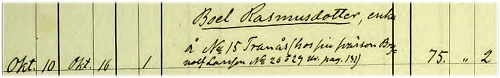 Boel Rasmusdotter, enka
å No 15 Tranås (hos sin svärson Bry-
Okt. 10 Okt. 16 1 nolf Larsson No 26 o 29 se pag. 131) 75. " 2